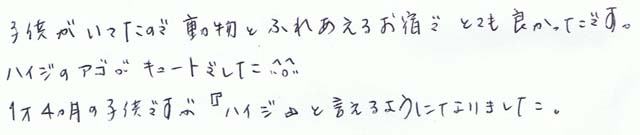 子供がいてたので動物とふれあえるお宿でとても良かったです。
ハイジのアゴがキュートでした^^
1才4ヵ月の子供ですが『ハイジ』と言えるようになりました。